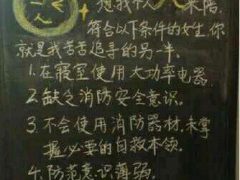 想找个人来陪。
符合以下条件的女生,你
就是我苦苦追寻的另一半。
1.在寝室使用大功率电器。
2.缺乏消防安全意识。
3.不会使用消防器材,未掌
握必要的自救本领。
4.防范意识薄弱。